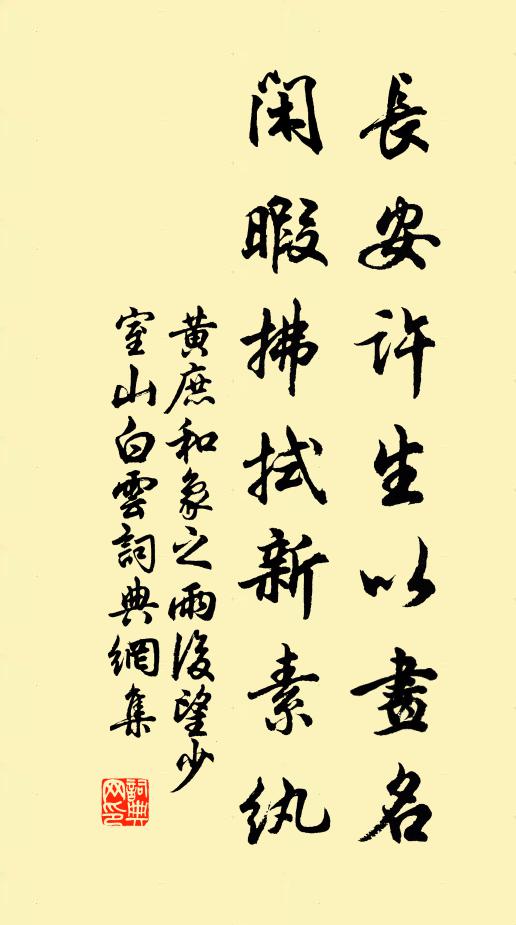 長安許生以畫名
閑暇拂拭新素紈
黃庶和象之雨後望少
室山白雲詞典網集
詞典
网印